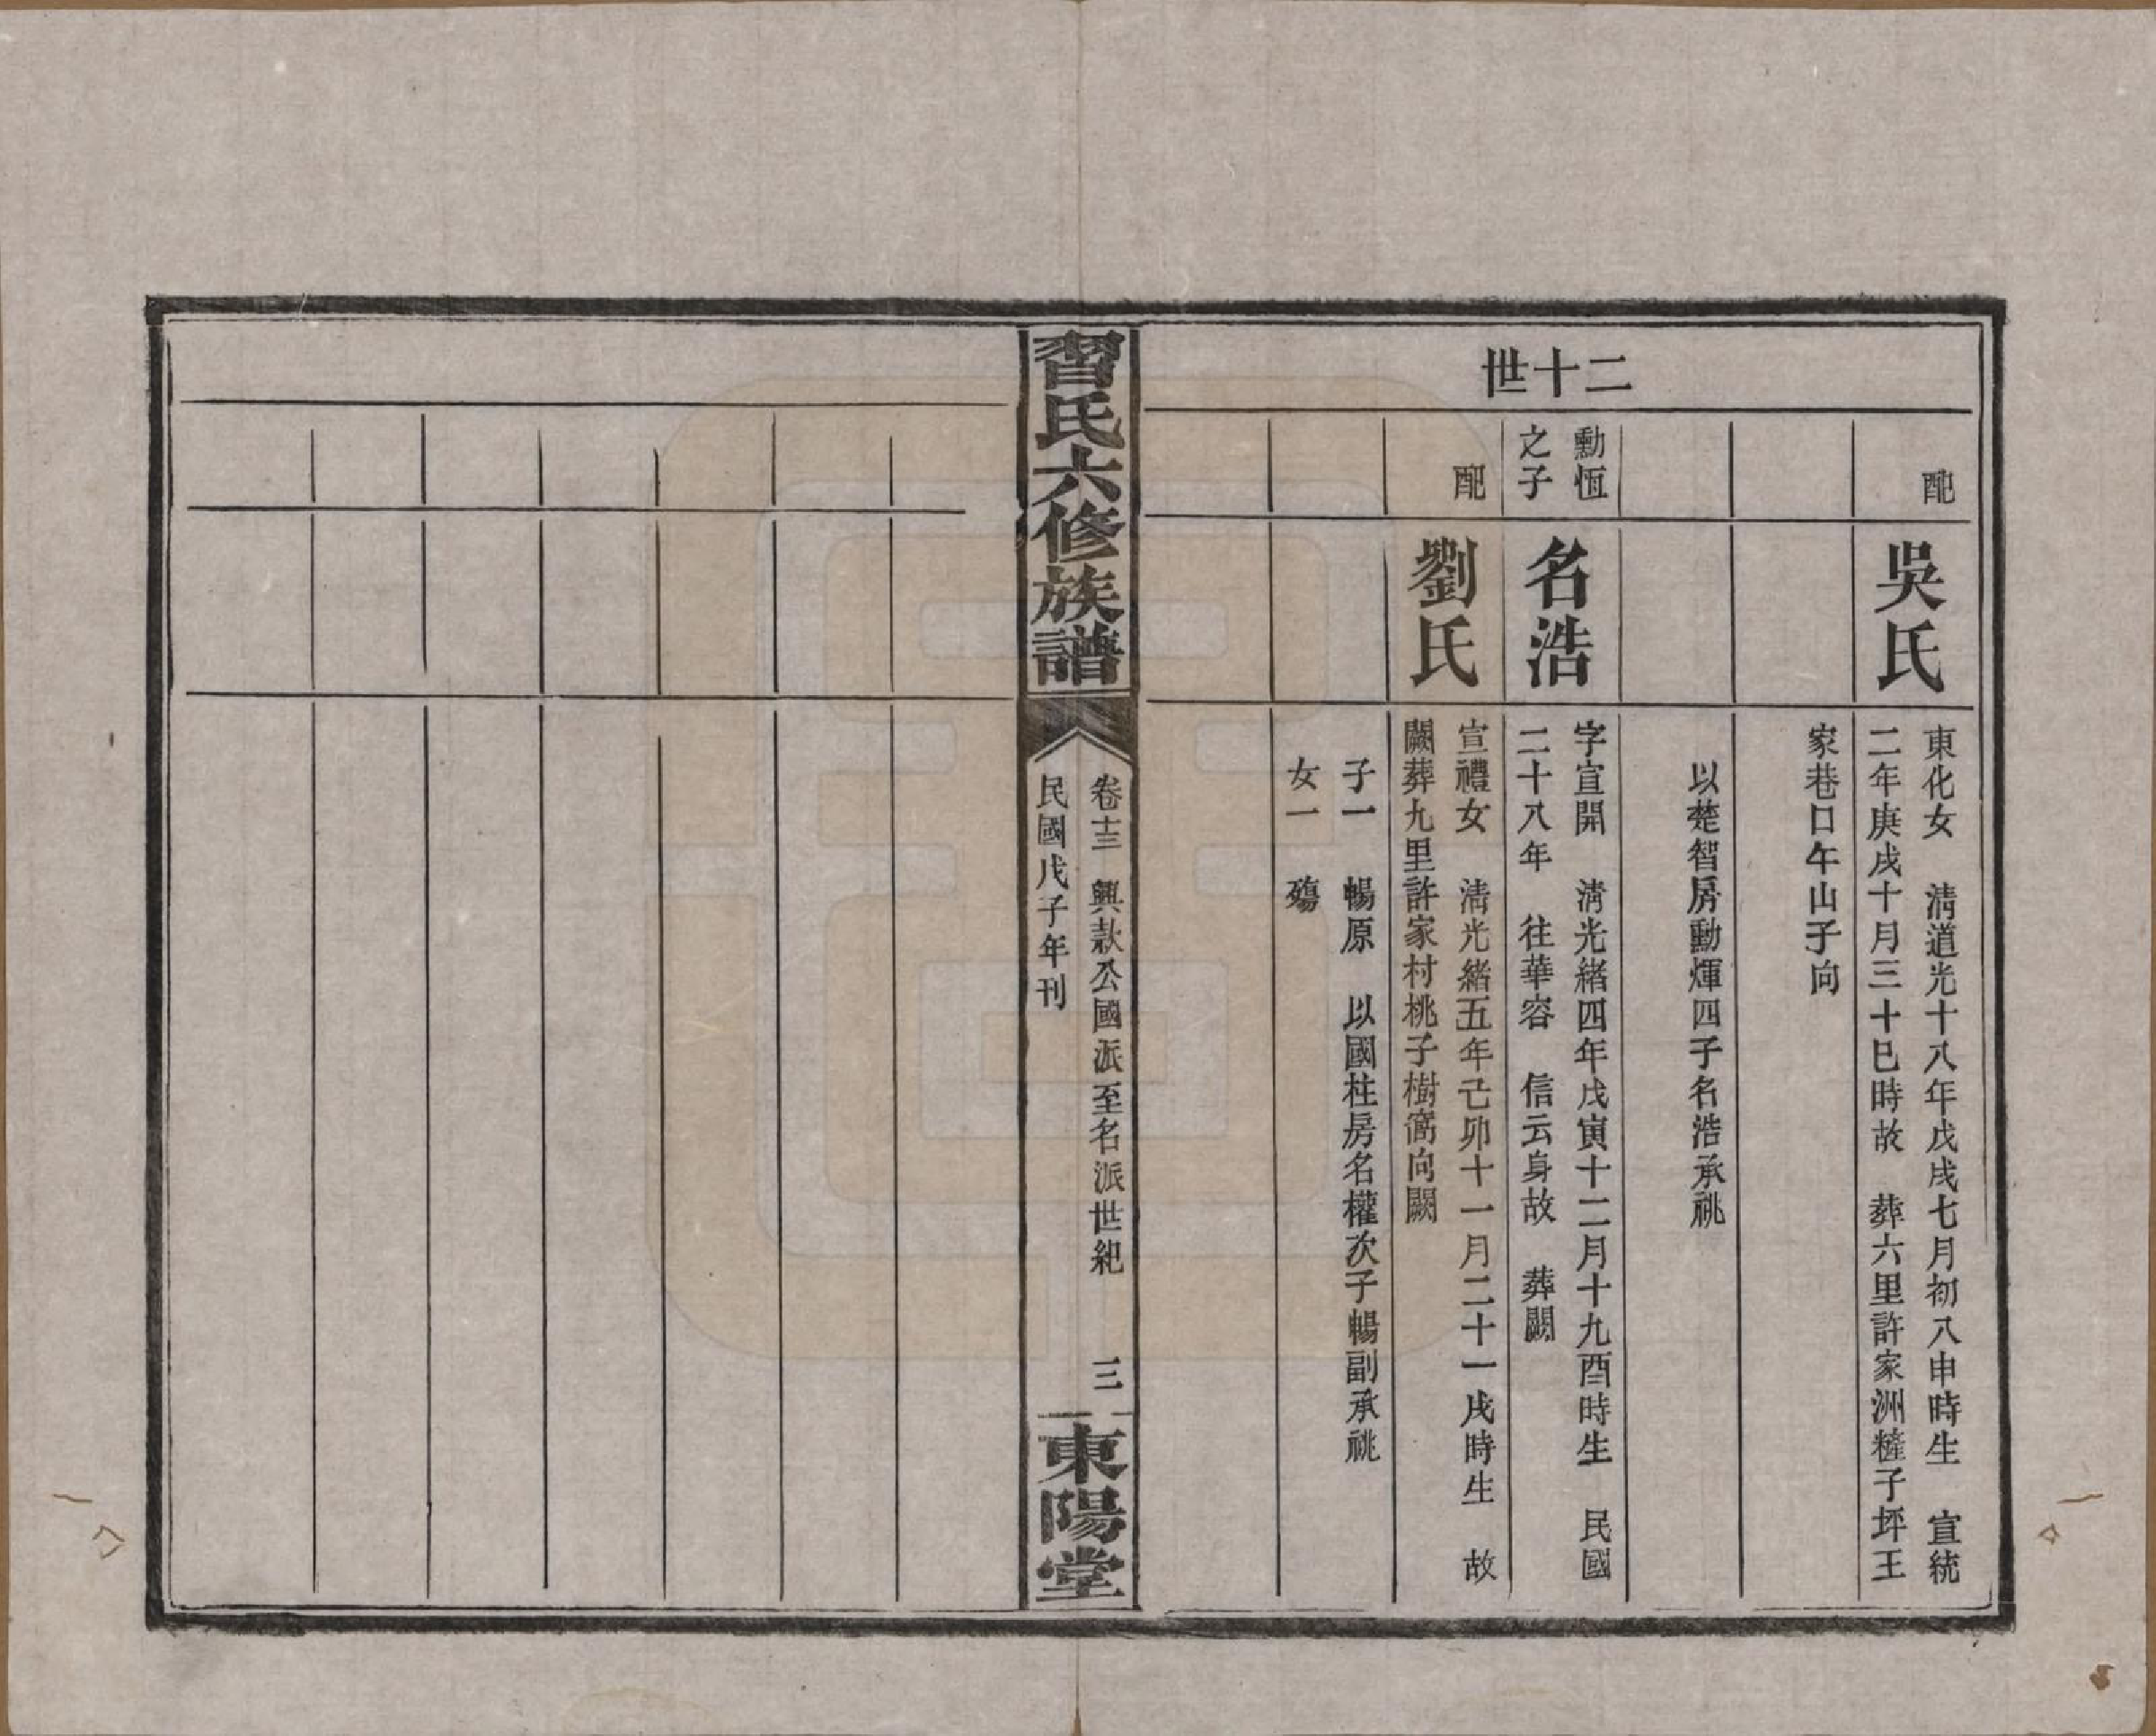 二十世
配
吳氏
東化女　清道光十八年戊戌七月初八申時生　宣統
二年庚戌十月三十巳時故　葬六里許家洲子坪王
家巷口午山子向
以楚智房勳煇四子名浩承祧
勳恆
之子
名浩
字宣開　清光緒四年戊寅十二月十九酉時生　民國
二十八年　往華容　信云身故　葬闕
配
劉氏
宣禮女　清光緒五年己卯十一月二十一戌時生　故
闕葬九里許家村桃子樹窩向闕
子一　暢原　以國柱房名權次子暢副承祧
女一　殤
習氏六修族譜
卷十三　興款公國派至名派世紀　三
民國戊子年刊
東陽堂